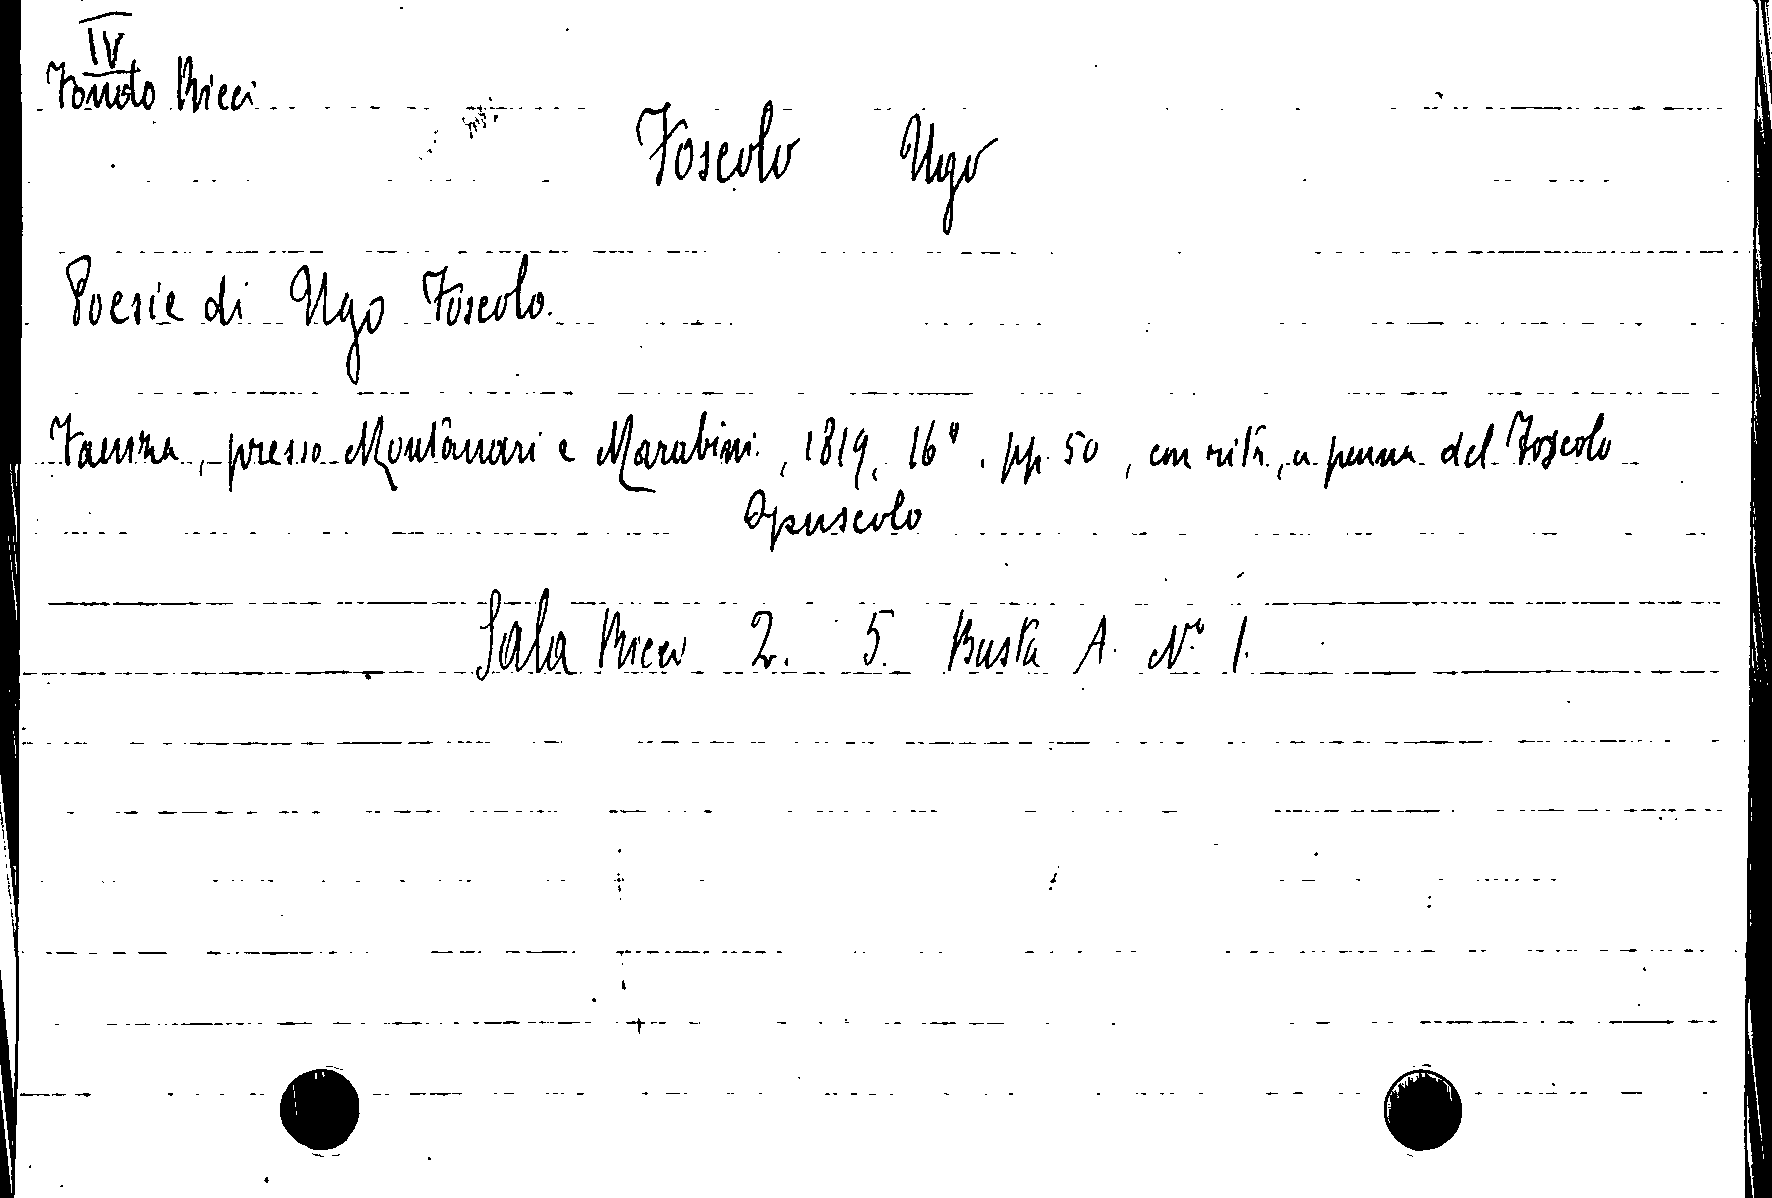 IV
Fondo Ricci
Foscolo Ugo
Poesie di Ugo Foscolo.
Faenza, presso Montanari e Marabini, 1819, 16°. pp. 50, con ritr. a penna del Foscolo
Opuscolo
Sala Ricci 2. 5. Busta A. N° 1.